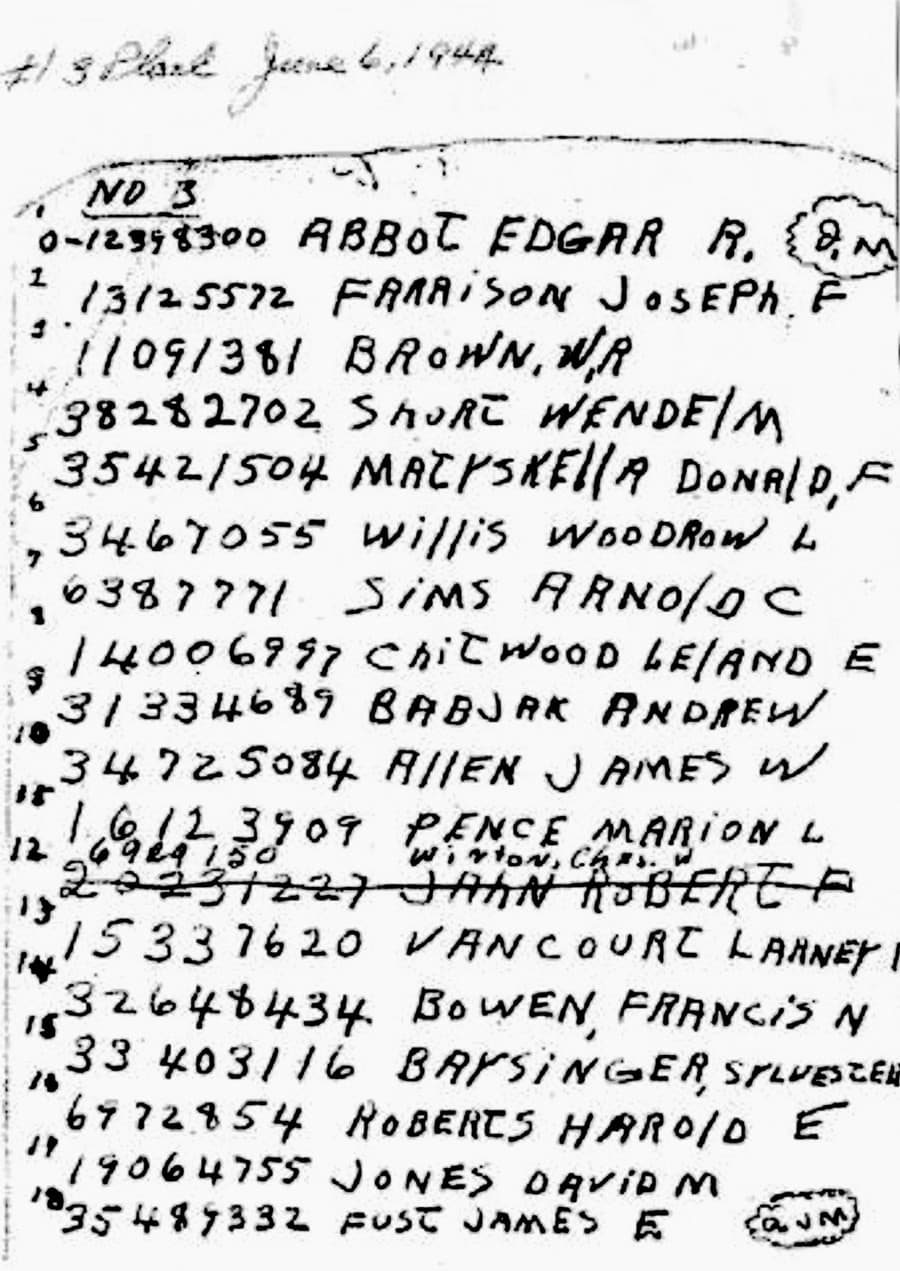 #13 Plack June 6, 1944
NO 3
1 0-12398300 ABBOT EDGAR R. J.M
2 13125572 FARRISON JOSEPh. F
3 11091381 BROWN, W,R
4 38282702 ShORT WENDElM
5 35421504 MATYSKEllA DONAlD, F
6 3467055 Willis WOODROW L
7 6387771 SiMS ARNOlD C
8 14006997 ChiTWOOD LElAND E
9 31334689 BABJAK ANDREW
10 34725084 AllEN JAMES W
11 16123909 PENCE MARiON L
12 6929150 Winton, Chas. W
20231227 JAhN ROBERT F
13 15337620 VANCOURT LARNEY
14 32648434 BOWEN, FRANCiS N
15 33403116 BAYSiNGER, SYLVESTER
16 6972854 ROBERTS HAROlD E
17 19064755 JONES DAViD M
18 35489332 FUST JAMES E JM